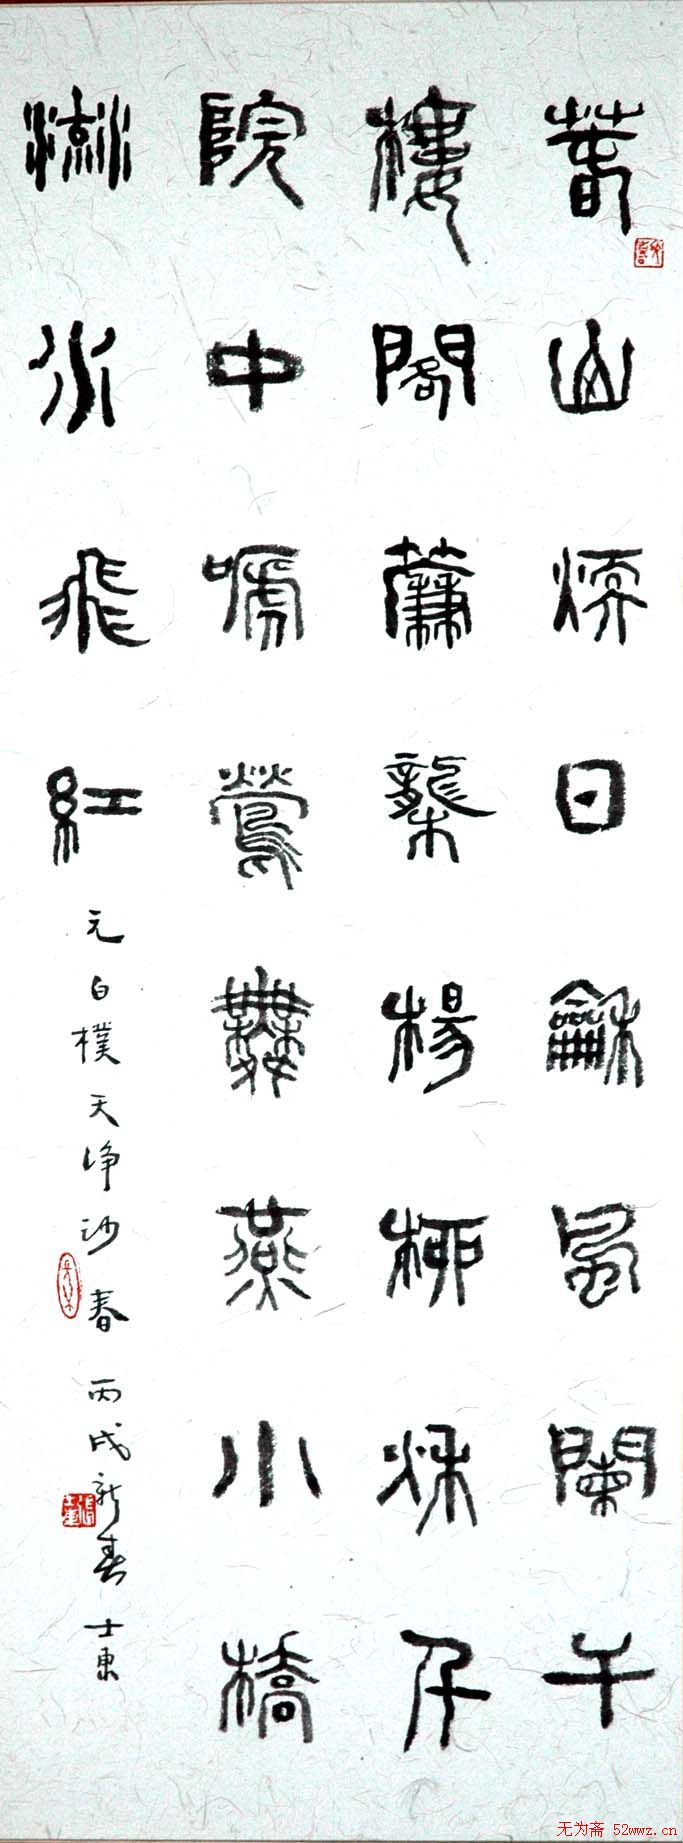 春山煖日龢風闌干
樓閣簾櫳楊柳秋千
院中嗁鶯舞燕小橋
流水飛紅
元白樸天淨沙春 丙戌新春 士東
无为斋 52wwz.cn